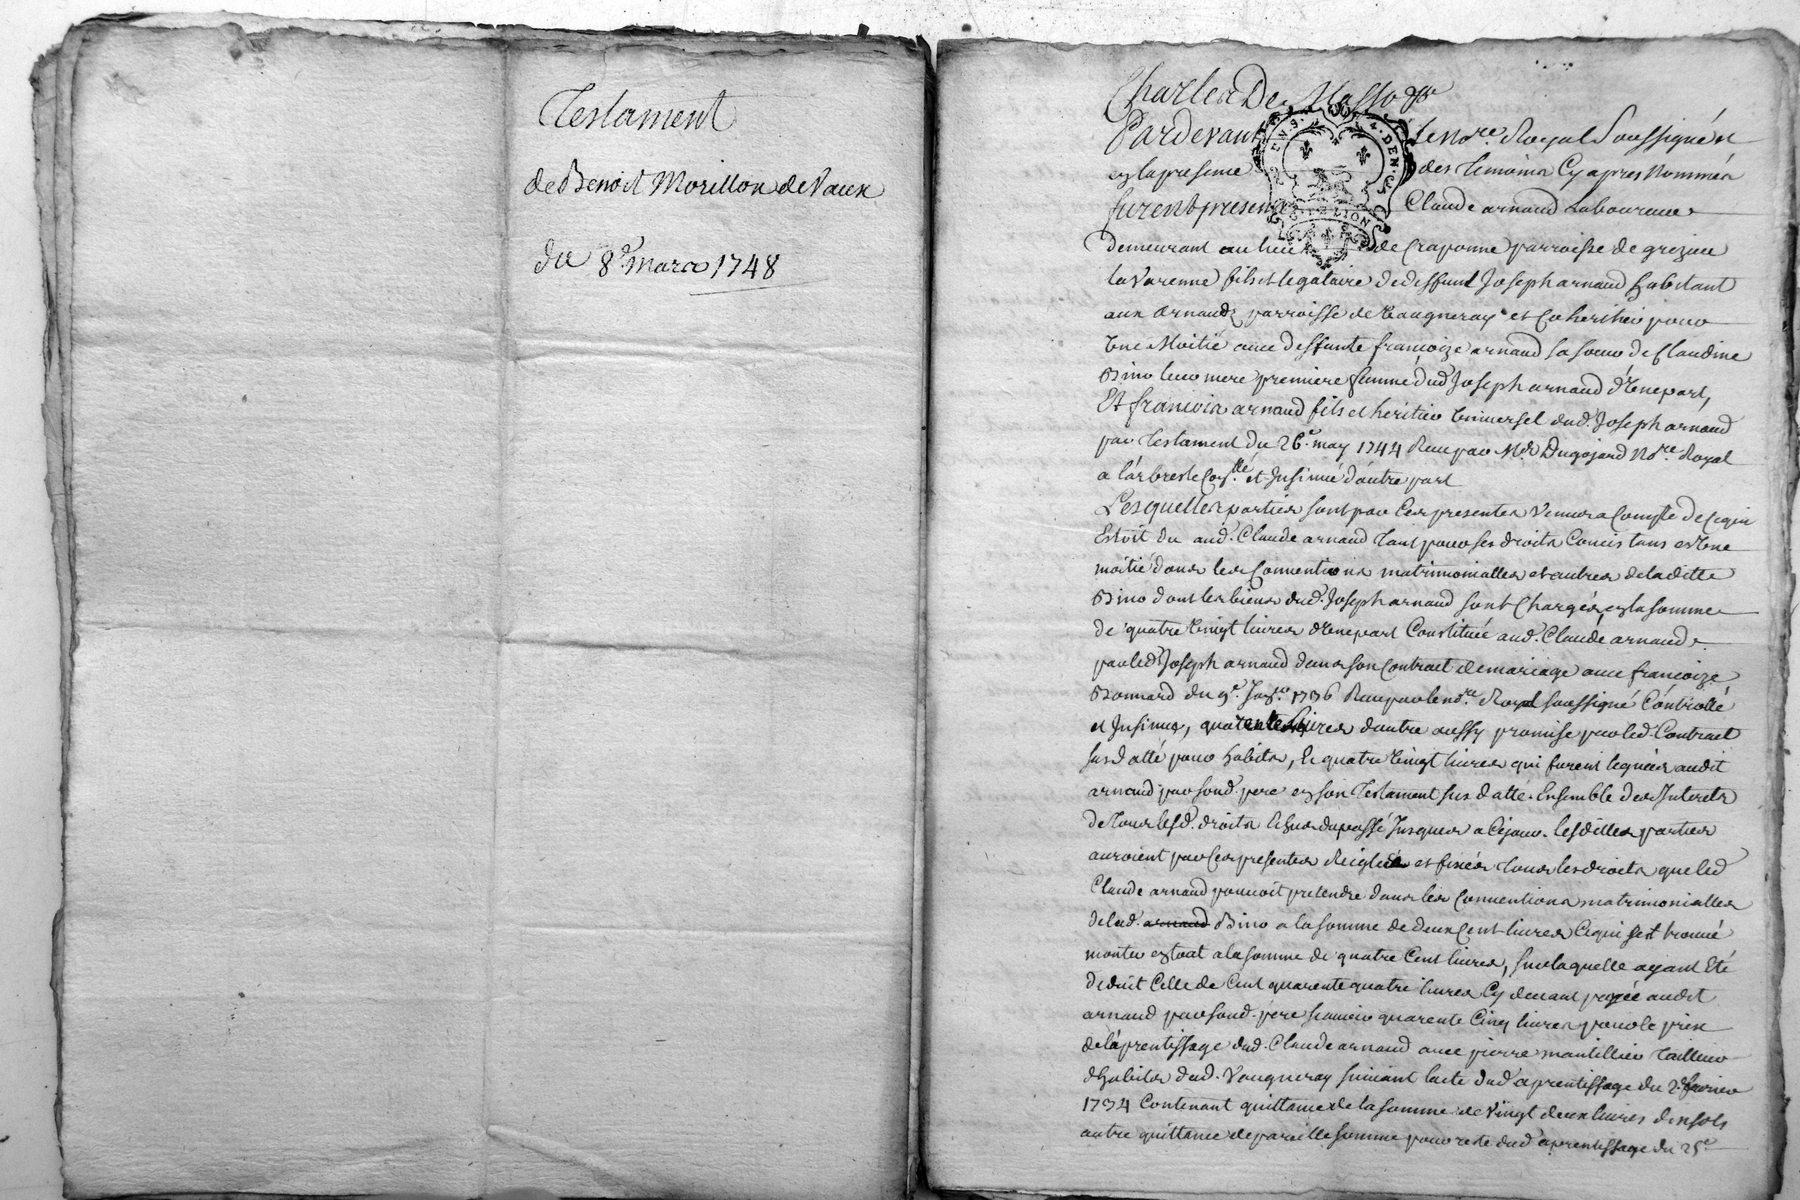 Testament
de Benoit Morillon de Vaux
du 8e. mars 1748
Charles De Masso
Pardevant le Nore. Royal Soussignés
en la presence des Temoins Cy apres Nommés
furent presens Claude arnaud Laboureur
demeurant au lieu de Craponne parroisse de grezieu
la Varenne fils et legataire de deffunt Joseph arnaud habitant
aux arnauds parroisse de Vaugneray et Coheritier pour
Une Moitié avec deffunte francoize arnaud sa soeur de Claudine
Bino leur mere premiere femme dud. Joseph arnaud d'Une part,
Et francois arnaud fils et héritier Universel dud. Joseph arnaud
par Testament du 26e. may 1744 Recu par Me Dugojard Nore. Royal
a l'arbresle Conllé et Insinué d'autre part
Lesquelles parties sont par Ces presentes Venues a Compte de Ce qui
Estoit du aud. Claude arnaud Tant pour ses droits Concistans en Une
moitié dans les Conventions matrimonialles et autres de la ditte
Bino dont les biens dud. Joseph arnaud sont Chargés en la somme
de quatre Vingt livres d'Une part Constituée aud. Claude arnaud
par led. Joseph arnaud dans son Contract de mariage avec francoize
Bonnard du 9e. 1736 Recu par le nore. Royal soussigné Controllé
et Insinué, quarente livres d'autre aussy promise par led. Contract
sus datté pour habits, Et quatre Vingt livres qui furent leguées audit
arnaud par sond. père en son Testament sus datté. Ensemble des Interets
de Tous lesd. droits Echus du passé Jusques a Cejour. lesdittes parties
auroient par Ces presentes Reiglés et fixés Tous les droits que led
Claude arnaud pouvoit pretendre dans les Conventions matrimonialles
de lad. arnaud Bino a la somme de deux Cent livres Ce qui s'est trouvé
monter en tout a la somme de quatre Cent livres, sur laquelle ayant Eté
deduit Celle de Cent quarente quatre livres Cy devant payée audit
arnaud par sond. père scavoir quarente Cinq livres pour le prix
de l'aprentissage dud. Claude arnaud avec pierre mantillier Tailleur
d'habits dud. Vaugneray suivant l'acte dud. aprentissage du 2e. fevrier
1734 Contenant quittance de la somme de Vingt deux livres dix sols
autre quittance de pareille somme pour reste dud. aprentissage du 25e